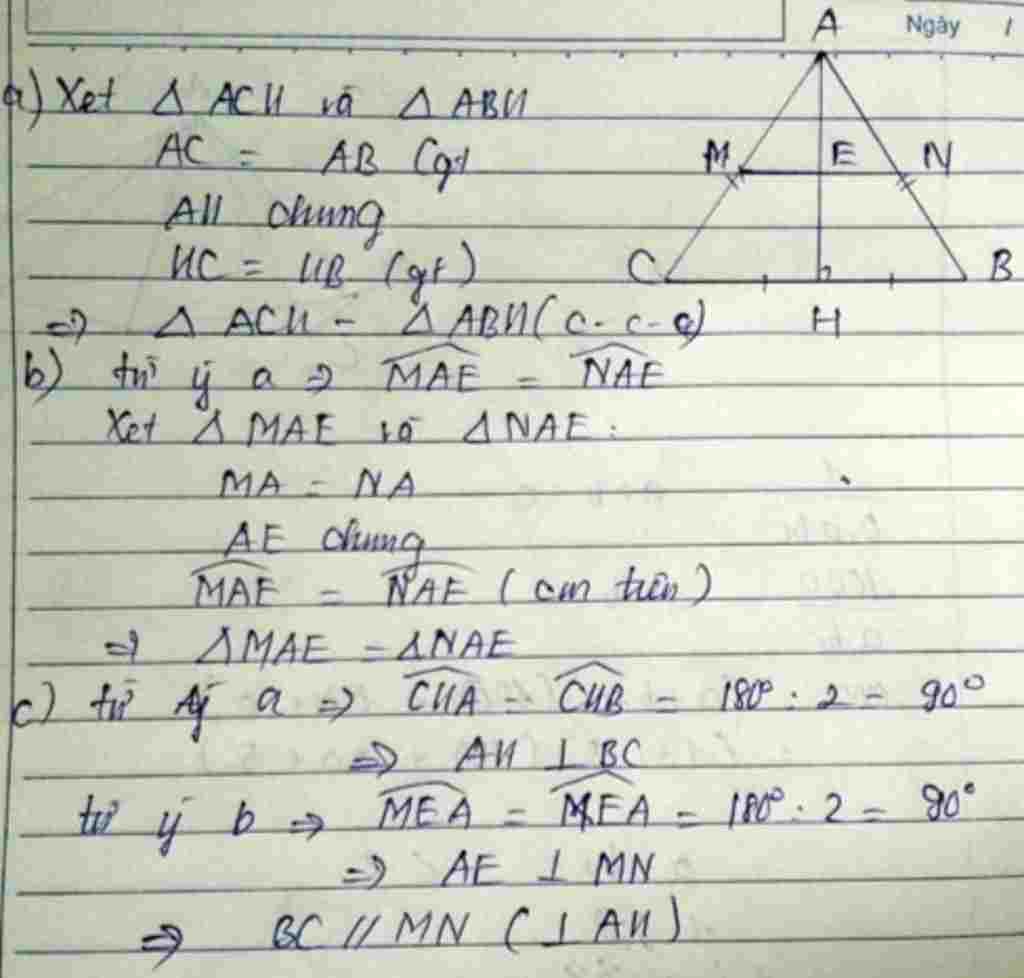 A
Ngày 1
a) Xet Δ ACH và Δ ABH
AC = AB (gt
M E N
AH chung
HC = HB (gt)
C B
⇒ Δ ACH = Δ ABH (c-c-c)
H
b) từ ý a ⇒ MAE = NAE
Xet Δ MAE và Δ NAE:
MA = NA
AE chung
MAE = NAE (cm trên)
⇒ ΔMAE = ΔNAE
c) từ ý a ⇒ CHA = CHB = 180° : 2 = 90°
⇒ AH ⊥ BC
từ ý b ⇒ MEA = NEA = 180° : 2 = 90°
⇒ AE ⊥ MN
⇒ BC // MN (⊥ AH)